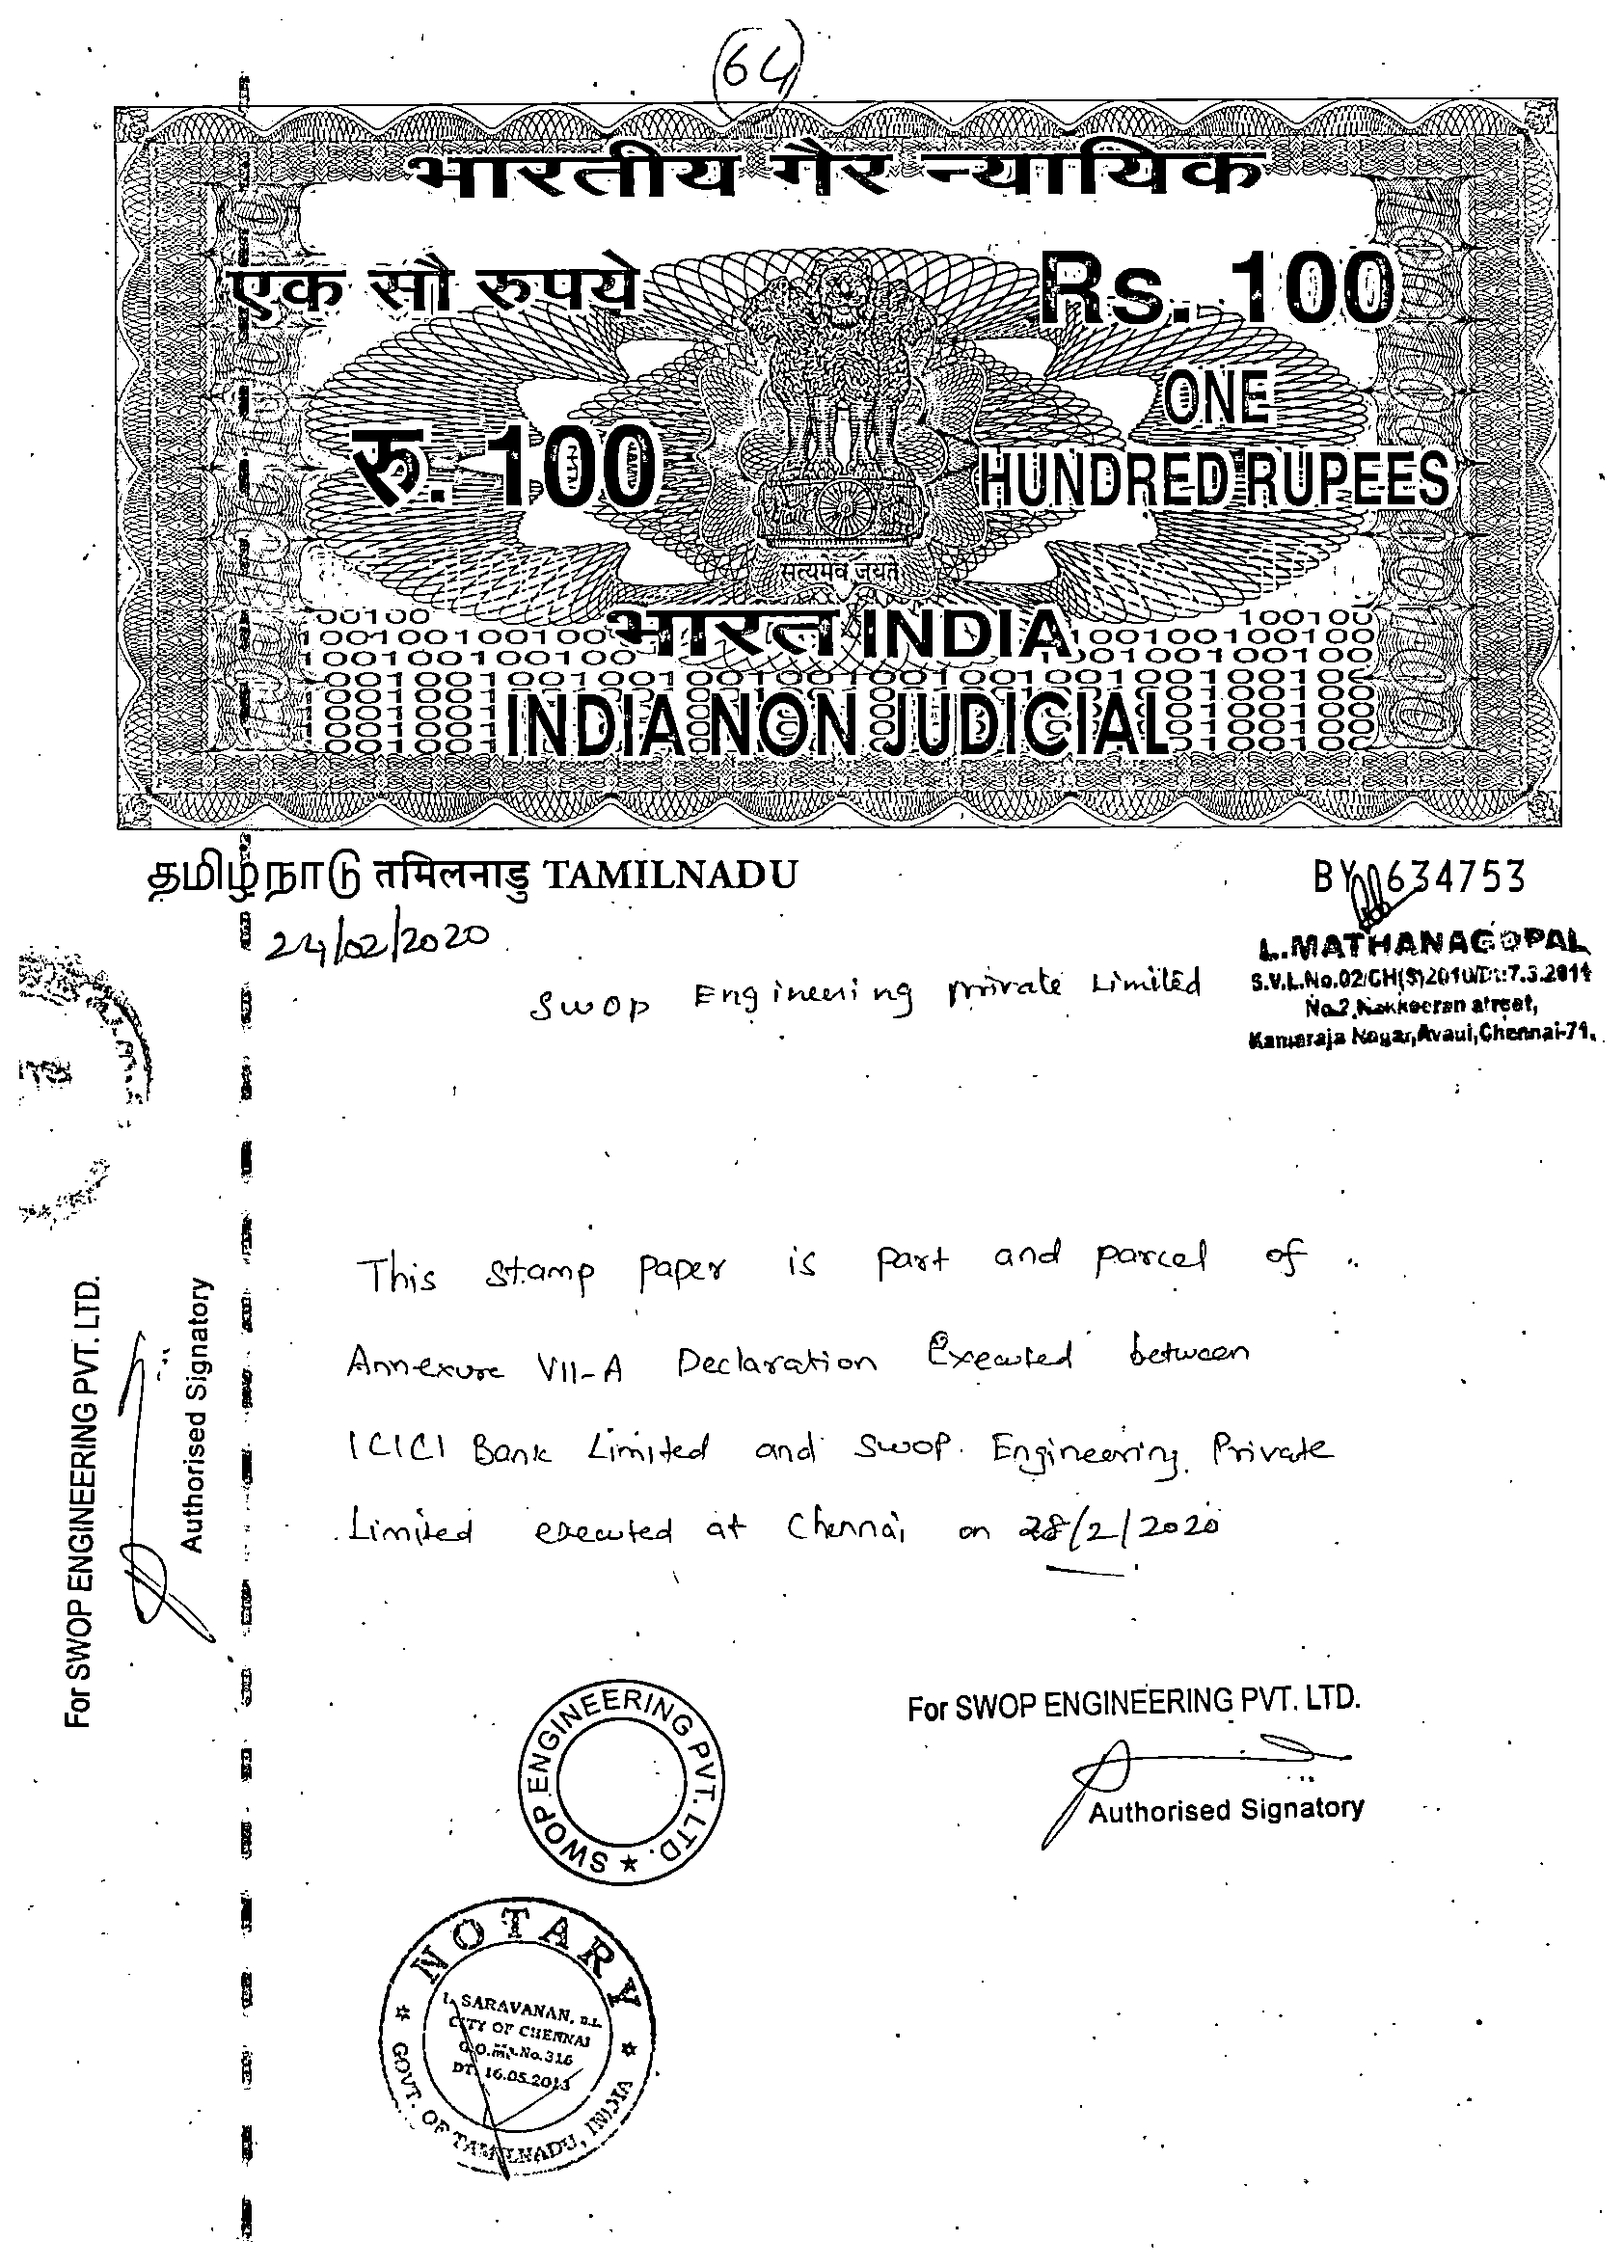 64
भारतीय गैर न्यायिक
एक सौ रुपये
Rs. 100
रु. 100
ONE
HUNDRED RUPEES
सत्यमेव जयते
भारत INDIA
INDIA NON JUDICIAL
தமிழ்நாடு तमिलनाडु TAMILNADU
BY 634753
24/02/2020
Swop Engineering private Limited
L.MATHANAGOPAL
S.V.L.No.02/CH(S)2010/Dt:7.3.2011
No.2, Nakkeeran street,
Kamaraja Nagar, Avadi, Chennai-71.
This stamp paper is part and parcel of
Annexure VII-A Declaration Executed between
ICICI Bank Limited and Swop. Engineering Private
Limited executed at Chennai on 28/2/2020
For SWOP ENGINEERING PVT. LTD.
Authorised Signatory
SWOP ENGINEERING PVT. LTD.
For SWOP ENGINEERING PVT. LTD.
Authorised Signatory
NOTARY
L. SARAVANAN, B.L.
CITY OF CHENNAI
G.O.Ms.No.316
DT. 16.05.2013
GOVT. OF TAMILNADU, INDIA